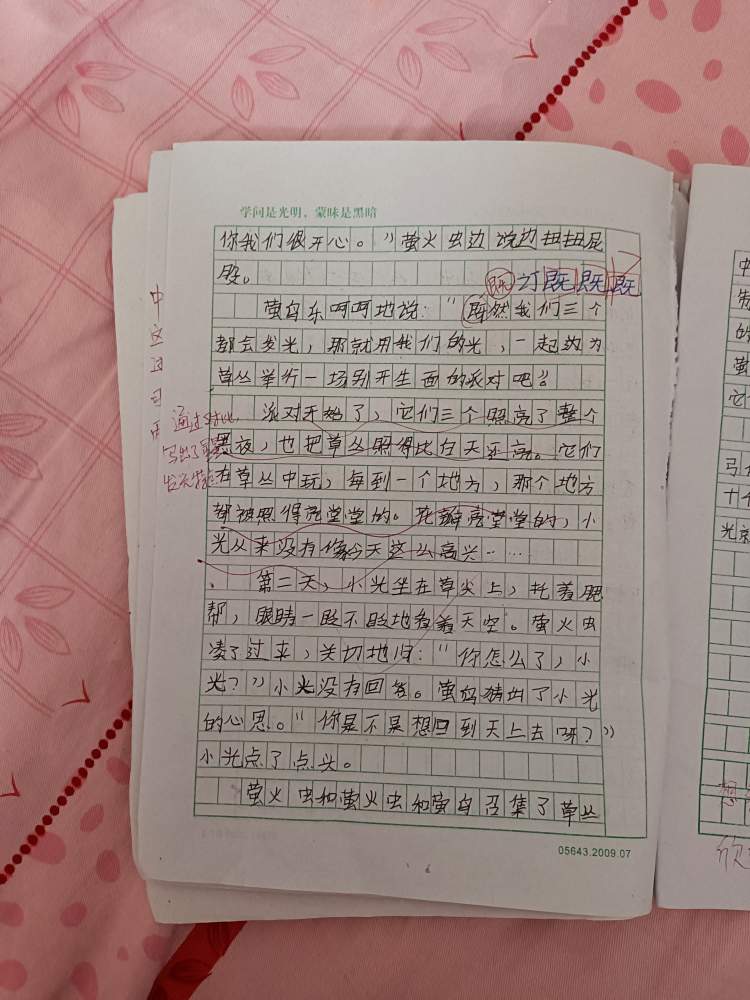 学问是光明，蒙昧是黑暗
你我们很开心。”萤火虫边说边扭扭屁
股。
既 订 既 既 既
萤乌东呵呵地说：“既然我们三个
都会发光，那就用我们的光，一起为
草丛举行一场别开生面的派对吧。”
派对开始了，它们三个照亮了整个
黑夜，也把草丛照得比白天还亮。它们
在草丛中玩，每到一个地方，那个地方
都被照得亮堂堂的。花瓣亮堂堂的，小
光从来没有像今天这么高兴……
第二天，小光坐在草尖上，托着腮
帮，眼睛一眨不眨地看着天空。萤火虫
凑了过来，关切地问：“你怎么了，小
光？”小光没有回答。萤乌猜出了小光
的心思。“你是不是想回到天上去呀？”
小光点了点头。
萤火虫和萤火虫和萤乌召集了草丛
通过对比，
写出了
发光
05643.2009.07
中
的
萤
它
弓
十
光
想
欣